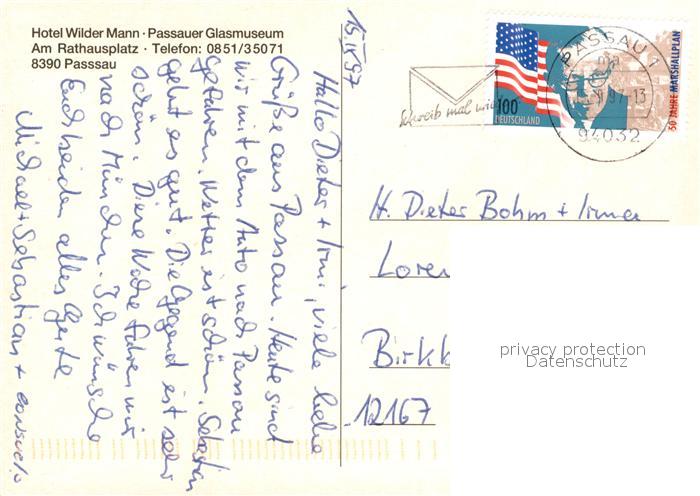 Hotel Wilder Mann · Passauer Glasmuseum
Am Rathausplatz · Telefon: 0851/35071
8390 Passsau
15.IV.97
Hallo Dieter + Irmi, viele liebe
Grüße aus Passau. Heute sind
wir mit dem Auto nach Passau
gefahren. Wetter ist schön. Sebastian
geht es gut. Die Gegend ist sehr
schön. Diese Woche fahren wir
nach München. Ich wünsche
Euch beiden alles Gute
Michael + Sebastian + Consuelo
Schreib mal wieder
100
DEUTSCHLAND
50 JAHRE MARSHALLPLAN
PASSAU 1
94032
H. Dieter Bohm + Irma
Loren
Birkb
12167
privacy protection
Datenschutz